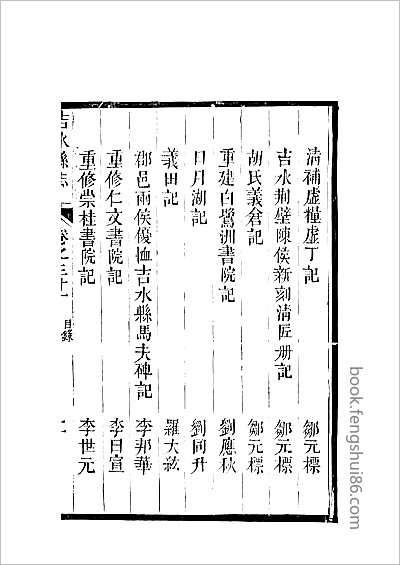 清補虛糧虛丁記 鄒元標
吉水荆壁陳侯新刻清匠册記 鄒元標
胡氏義倉記 鄒元標
重建白鷺洲書院記 劉應秋
日月湖記 劉同升
義田記 羅大紘
郡邑兩侯優恤吉水縣馬夫碑記 李邦華
重修仁文書院記 李日宣
重修崇桂書院記 李世元
吉水縣志 卷之三十 目錄
book.fengshui86.com